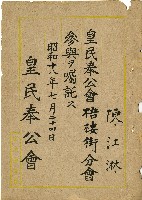 陳江淋
皇民奉公會梧棲街分會
參與ヲ囑託ス
昭和十八年七月二十四日
皇民奉公會